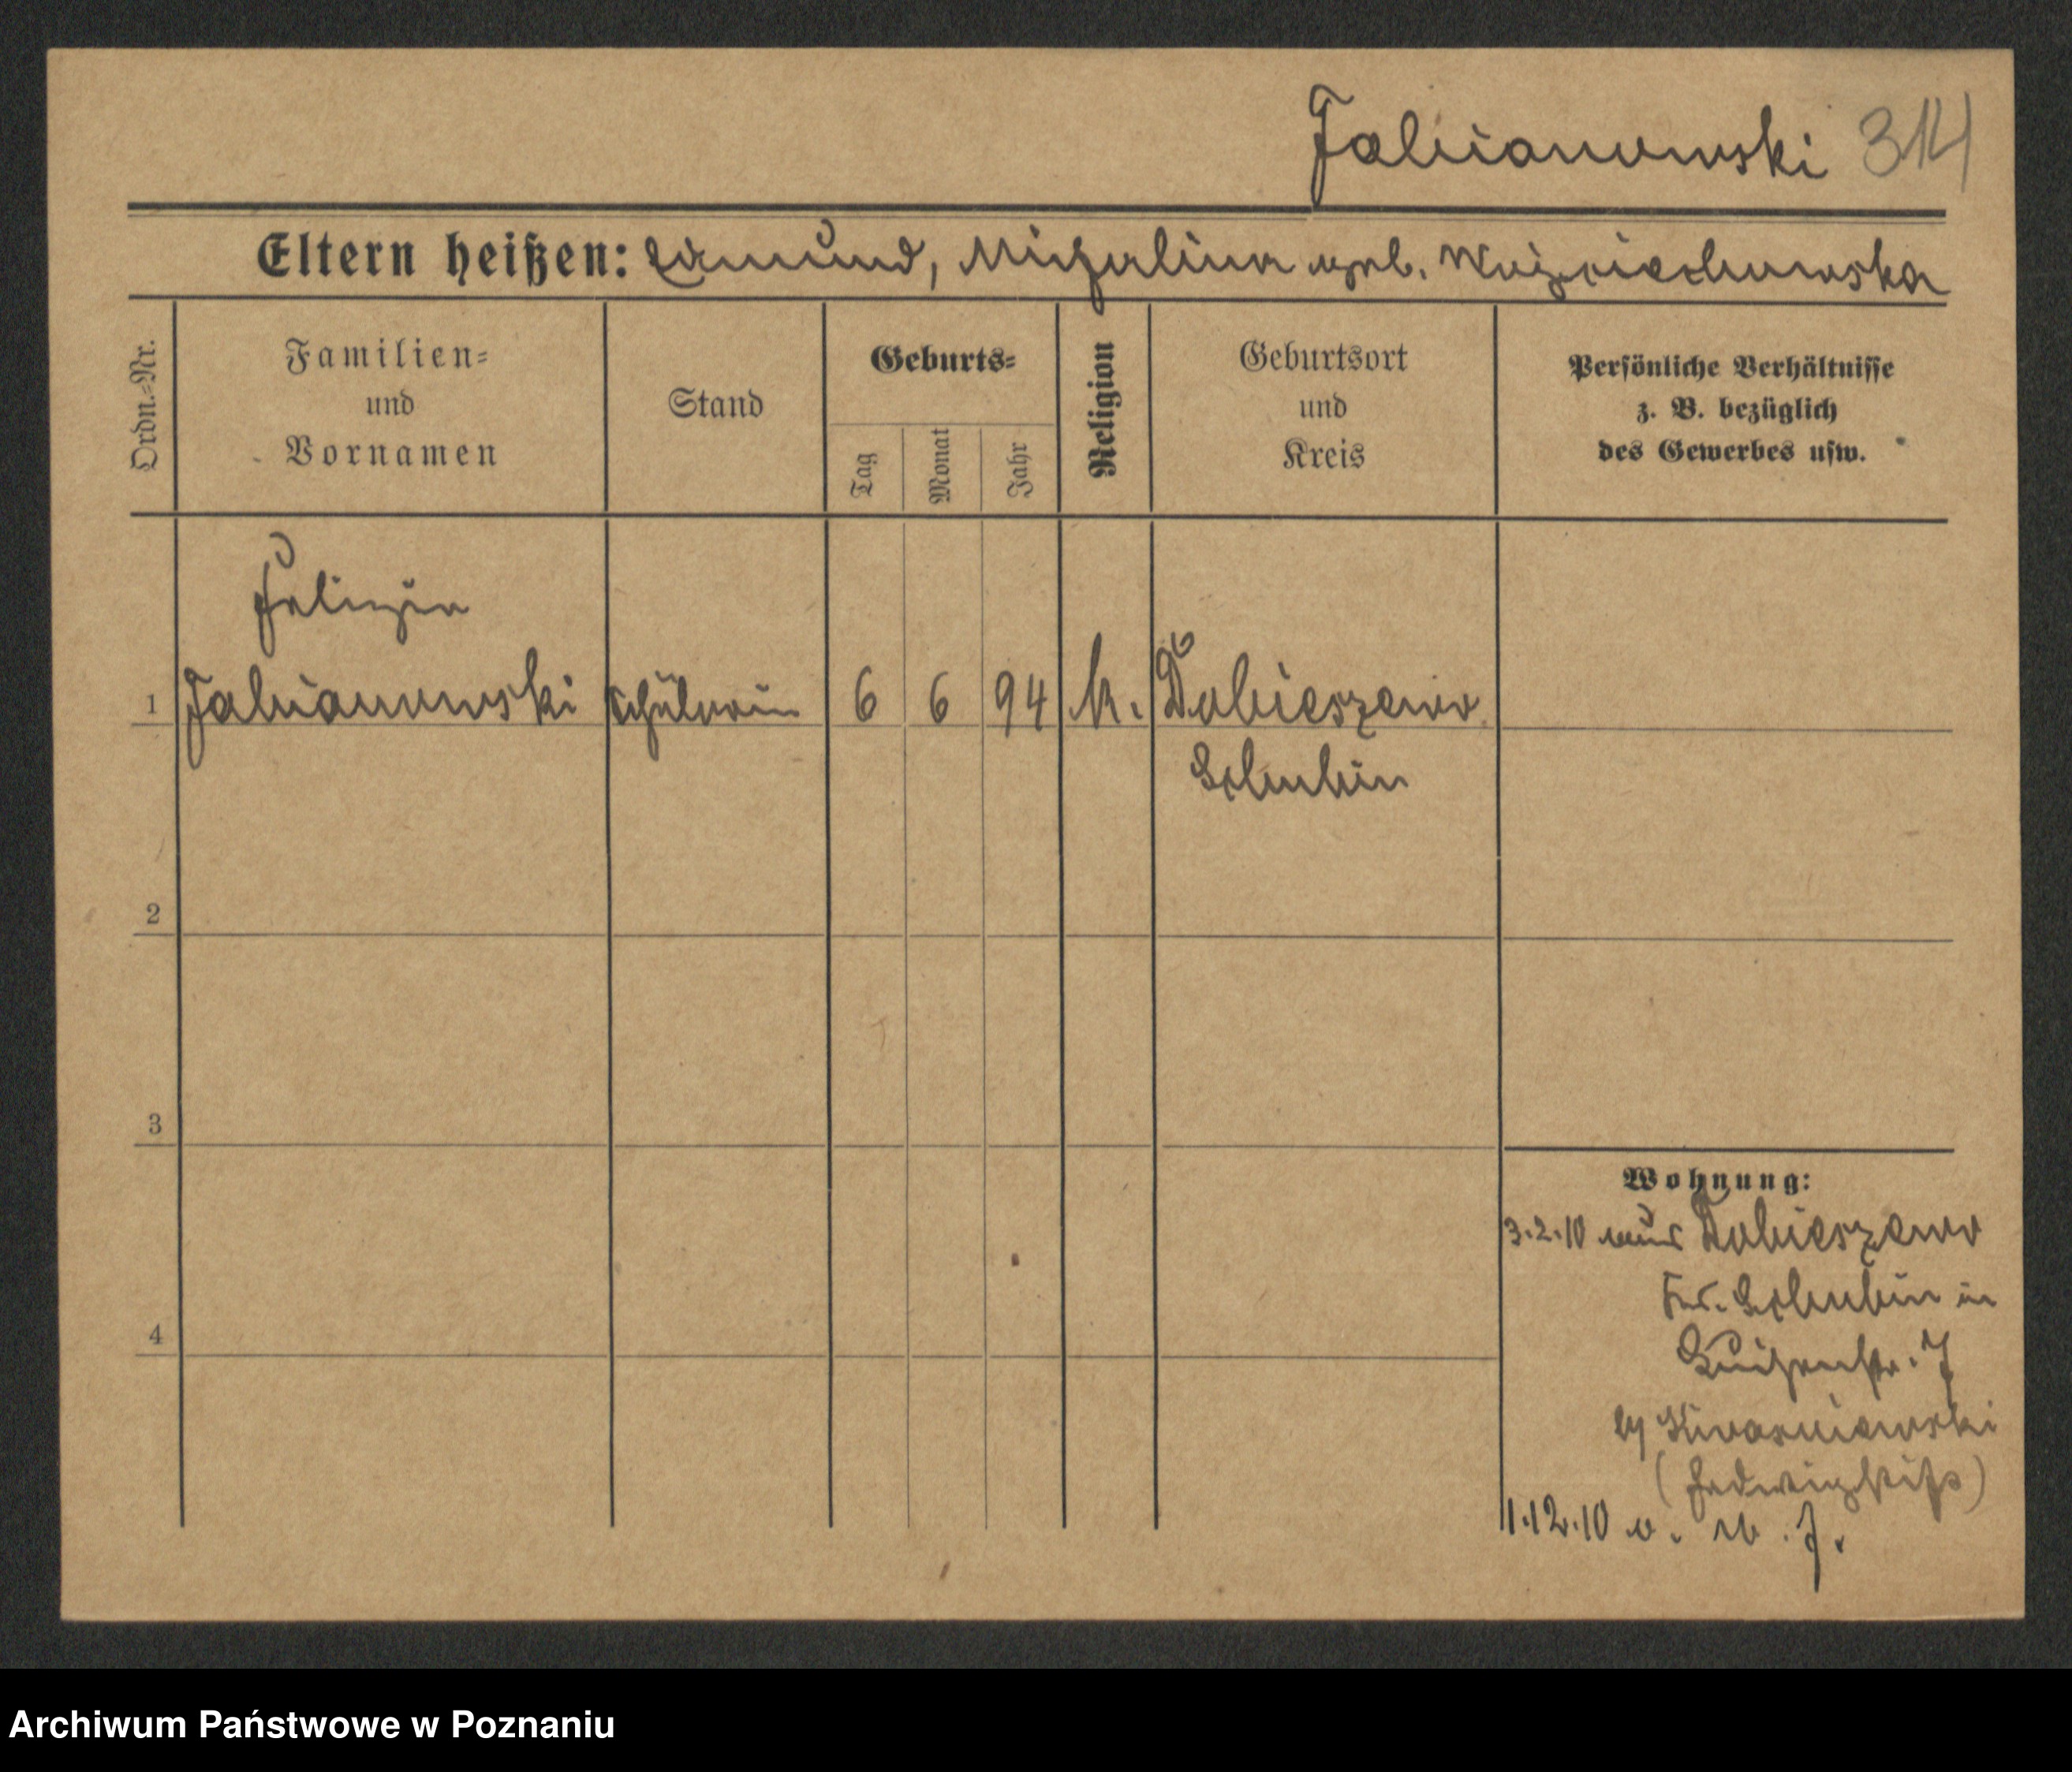 Fabianowski 314
Eltern heißen: Edmund, Michalina geb. Woyciechowska
Ordn.-Nr.
Familien-
und
Vornamen
Stand
Geburts-
Tag
Monat
Jahr
Religion
Geburtsort
und
Kreis
Persönliche Verhältnisse
z. B. bezüglich
des Gewerbes usw.
Felizia
1 Fabianowski Schülerin 6 6 94 k. Dobieszewo
Schubin
2
3
4
Wohnung:
3.2.10 aus Dobieszewo
Kr. Schubin in
Luisenstr. 7
by Kwasniewski
(Hedwigstift)
1.12.10 v.
Archiwum Państwowe w Poznaniu